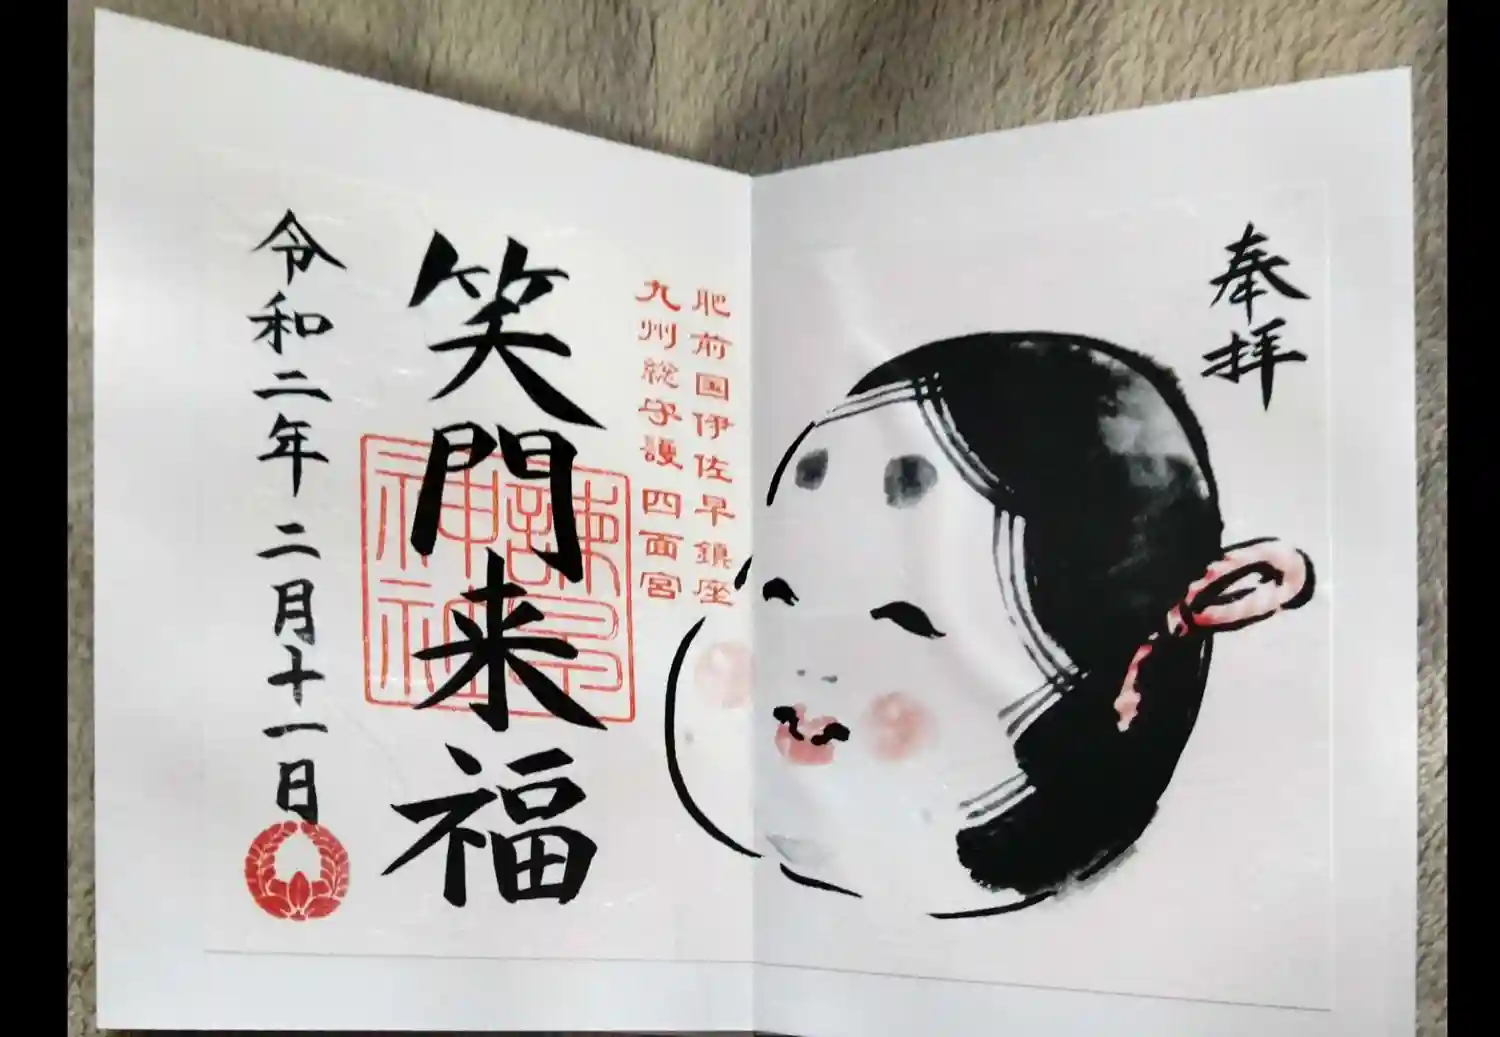 奉拝
肥前国伊佐早鎮座
九州総守護 四面宮
笑門来福
諫早神社
令和二年 二月十一日